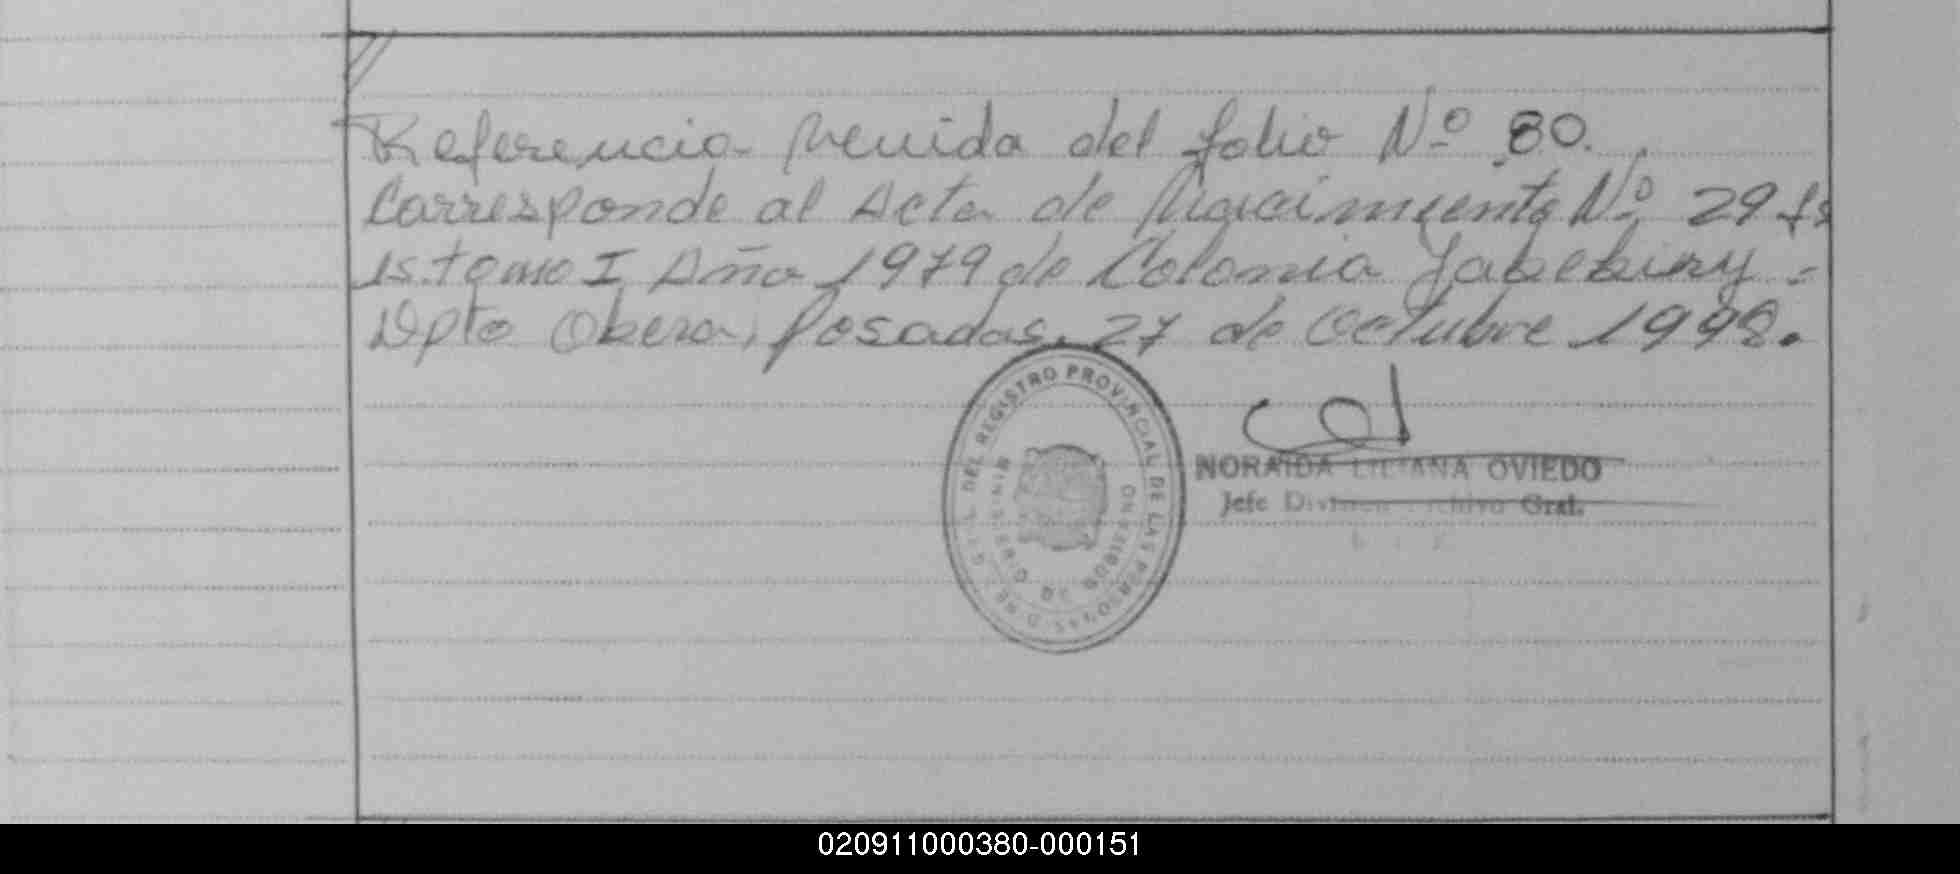 Referencia Venida del folio Nº 80.
Corresponde al Acta de Nacimiento Nº 29 fs
15. tomo I Año 1979 de Colonia Yabebiry -
Dpto Obera, Posadas, 27 de Octubre 1998.
DEL REGISTRO PROVINCIAL DE LAS PERSONAS
MINISTERIO DE GOBIERNO
NORAIDA LILIANA OVIEDO
Jefe División Archivo Gral.
020911000380-000151